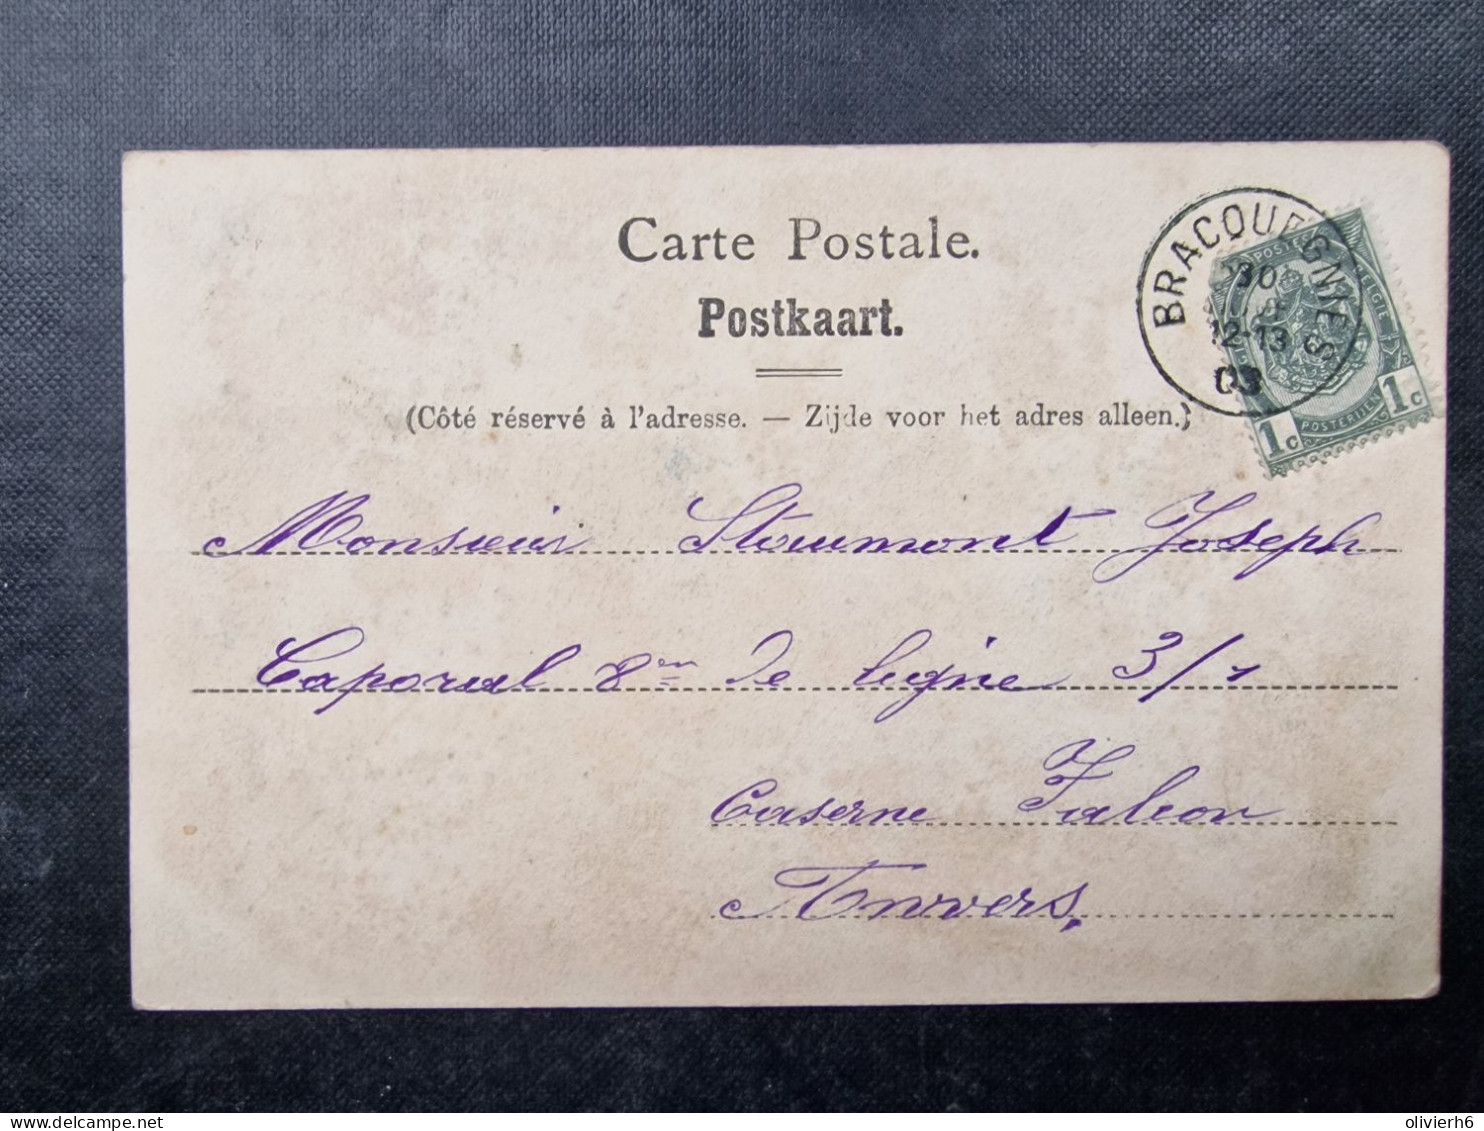 Carte Postale.
Postkaart.
(Côté réservé à l'adresse. — Zijde voor het adres alleen.)
BRACQUEGNIES
30
12-13
03
POSTERIJEN
1c 1c
Monsieur Stourmont Joseph
Caporal 8en de ligne 3/1
Caserne Falcon
Anvers,
www.delcampe.net
olivierh6